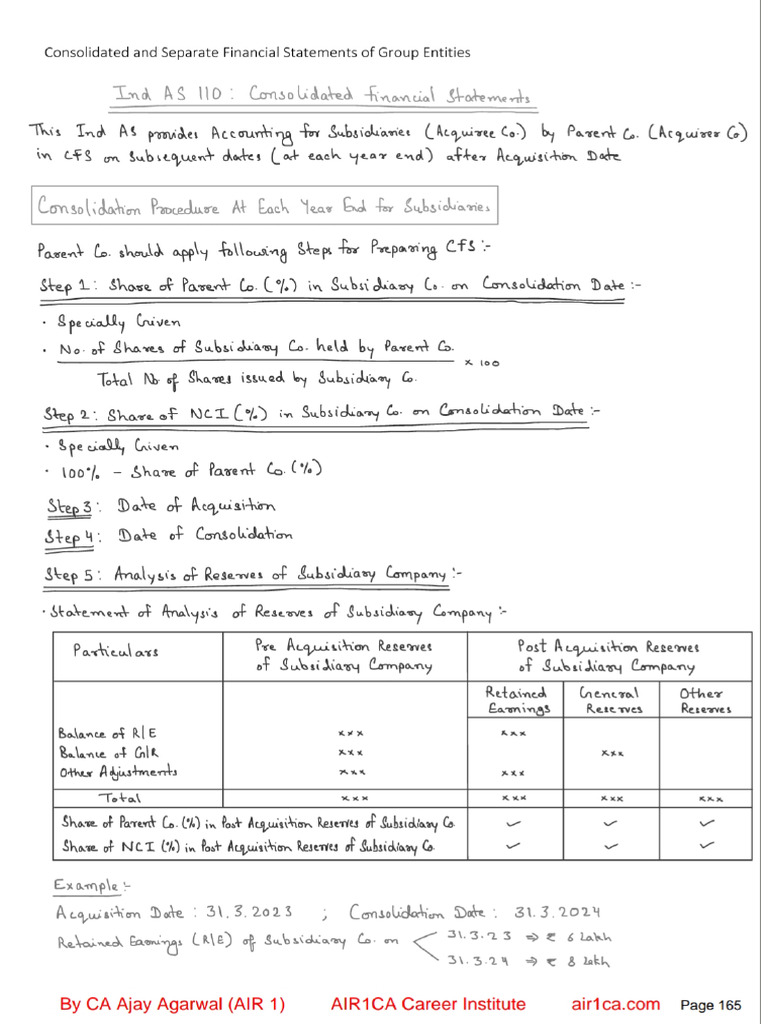 Consolidated and Separate Financial Statements of Group Entities
Ind AS 110 : Consolidated Financial Statements
This Ind AS provides Accounting for Subsidiaries (Acquiree Co.) by Parent Co. (Acquirer Co)
in CFS on Subsequent dates (at each year end) after Acquisition Date
Consolidation Procedure At Each Year End for Subsidiaries
Parent Co. should apply following Steps for Preparing CFS :-
Step 1 : Share of Parent Co. (%) in Subsidiary Co. on Consolidation Date :-
• Specially Given
• No. of Shares of Subsidiary Co. held by Parent Co.
x 100
Total No of Shares issued by Subsidiary Co.
Step 2 : Share of NCI (%) in Subsidiary Co. on Consolidation Date :-
• Specially Given
• 100% - Share of Parent Co. (%)
Step 3 : Date of Acquisition
Step 4 : Date of Consolidation
Step 5 : Analysis of Reserves of Subsidiary Company :-
• Statement of Analysis of Reserves of Subsidiary Company :-
Particulars Pre Acquisition Reserves Post Acquisition Reserves
of Subsidiary Company of Subsidiary Company
Retained General Other
Earnings Reserves Reserves
Balance of R/E xxx xxx
Balance of G/R xxx xxx
Other Adjustments xxx xxx
Total xxx xxx xxx xxx
Share of Parent Co. (%) in Post Acquisition Reserves of Subsidiary Co ✓ ✓ ✓
Share of NCI (%) in Post Acquisition Reserves of Subsidiary Co. ✓ ✓ ✓
Example :-
Acquisition Date : 31.3.2023 ; Consolidation Date : 31.3.2024
Retained Earnings (R/E) of Subsidiary Co. on 31.3.23 ⇒ ₹ 6 Lakh
31.3.24 ⇒ ₹ 8 Lakh
By CA Ajay Agarwal (AIR 1) AIR1CA Career Institute air1ca.com Page 165